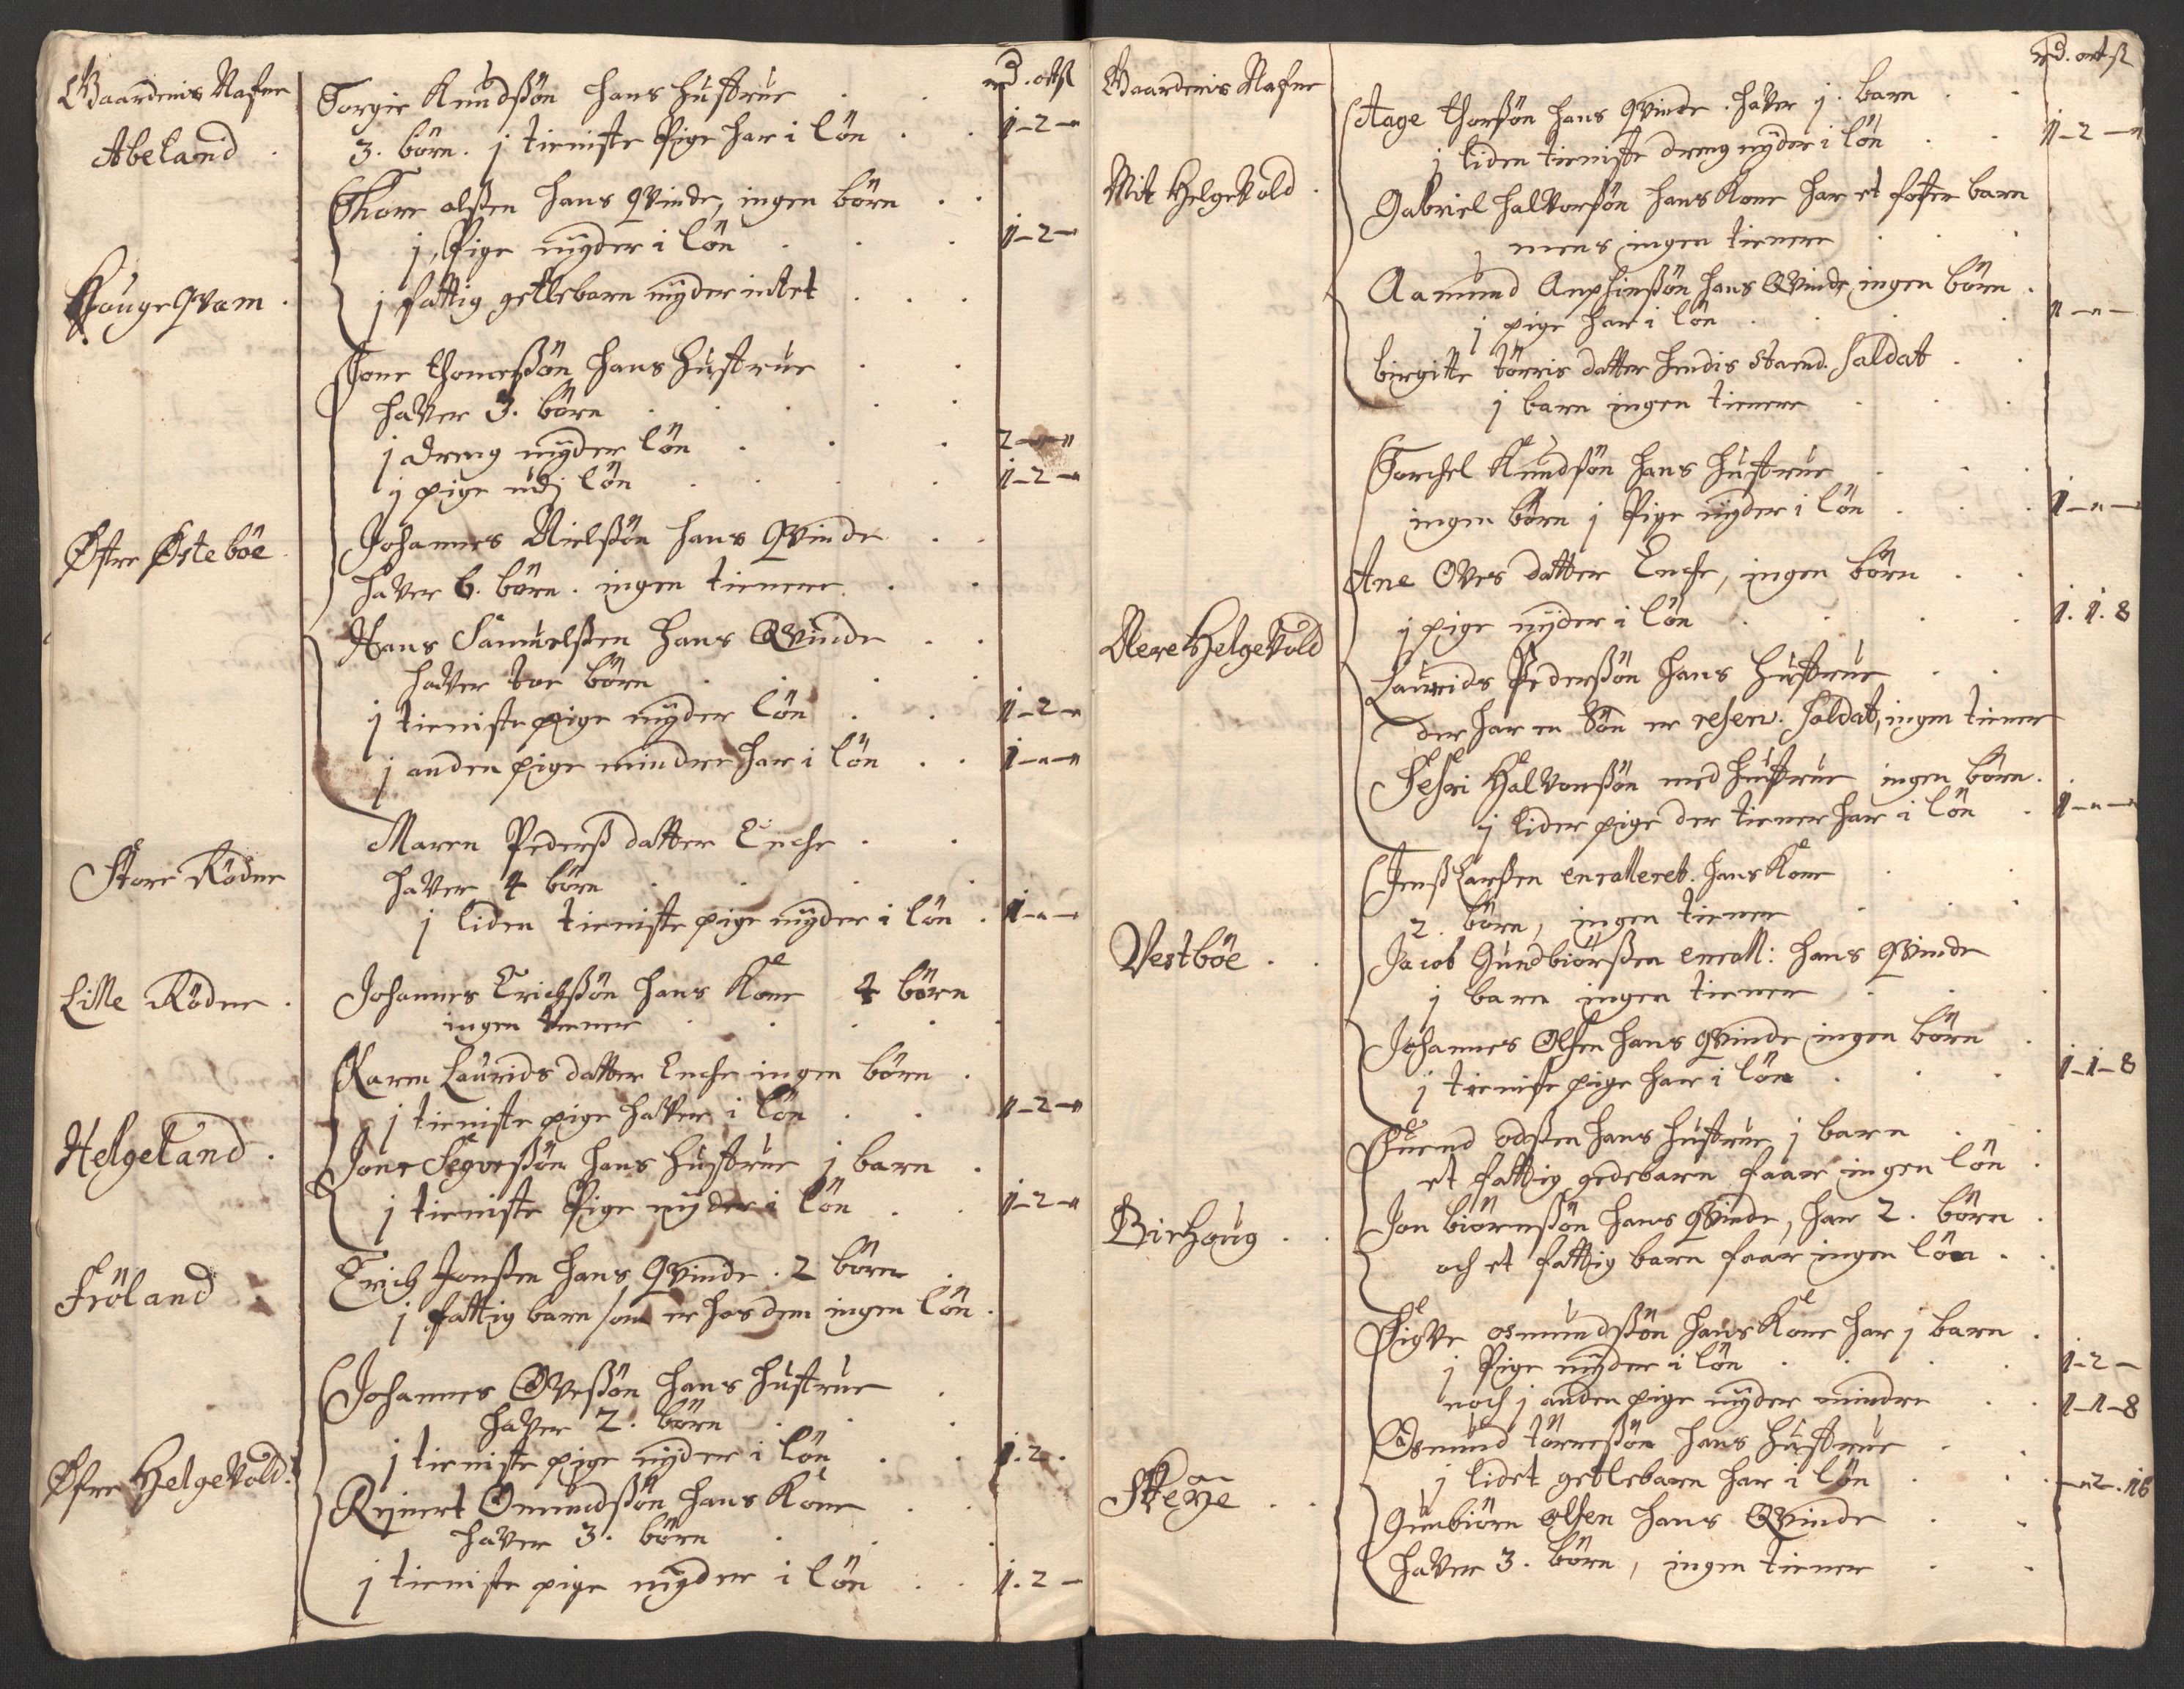 Gaardenis Nafne
rd. ort ß
Torgir Knudßön hans hustrue
Abeland
3. börn. j tieniste Pige har i lön 1-2-"
Thore olßen hans qvinde, ingen börn
j Pige nyder i lön 1-2-"
HougeQvam
j fattig getlebarn nyder intet
Jone thomeßön hans hustrue
haver 3. börn
j dreng nyder lön 2-"-"
j pige udj lön 1-2-"
Øfre Østeböe
Johannes Nielßön hans Qvinde
haver 6. börn. ingen tienere
Hans Samuelßen hans Qvinde
haver toe börn
j tieniste pige nyder lön 1-2-"
j anden pige mindre har i lön 1-"-"
Maren Pederß datter Enche
Store Rödne
haver 4 börn
j liden tieniste pige nyder i lön 1-"-"
Lille Rödne
Johannes Erichßön hans Kone 4 börn
ingen tiener
Karen Laurids datter Enche ingen börn
j tieniste pige haver i lön 1-2-"
Helgeland
Jone Segveßön hans hustrue j barn
j tieniste Pige nyder i lön 1-2-"
Fröland
Erich Jonßen hans Qvinde. 2 börn
j fattig barn som er hos dem ingen lön
Johannes Oveßön hans hustrue
haver 2. börn
j tieniste pige nyder i lön 1.2.
Øfre HelgeVold
Rejnert Omundßön hans Kone
haver 3. börn
j tieniste pige nyder i lön 1.2-
Gaardenis Nafne
rd. ort ß
Aage thorßön hans qvinde. haver j. barn
j liden tieniste dreng nyder i lön 1-2-"
Mit HelgeVold
Gabriel halvorßön hans Kone har et foster barn
mens ingen tienere
Aamund Anphinßön hans Qvinde ingen börn
j pige har i lön 1-"-
birgitte törris datter hendis Mand. Soldat
j barn ingen tienere
Torchel Knudßön hans hustrue
ingen börn j Pige nyder i lön 1-"-
Ane Oves datter Enche, ingen börn
j pige nyder i lön 1.1.8
Nere HelgeVold
Laurids Pederßön hans hustrue
der har en Sön er reserv. Soldat, ingen tiener
Halvorßön med hustrue ingen börn.
j liden pige der tiener har i lön 1-"-"
Jenß Larßen enrolleret. hans Kone
2. börn, ingen tiener
Vestböe
Jacob Gundbiörßen enroll: hans qvinde
j barn ingen tiener
Johannes Olsen hans qvinde ingen börn
j tieniste pige har i lön 1-1-8
Suend odßen hans hustrue j barn
et fattig gedebarn faar ingen lön
Birhoug
Jon biörnßön hans qvinde, har 2. börn
och et fattig barn faar ingen lön
Sigve osmundßön hans Kone har j barn
j Pige nyder i lön 1-2-
noch j anden pige nyder mindre 1-1-8
Osmund törreßön hans hustrue
j lidet getlebarn har i lön -"2.16
Gunbiörn olsen hans Qvinde
haver 3. börn, ingen tiener